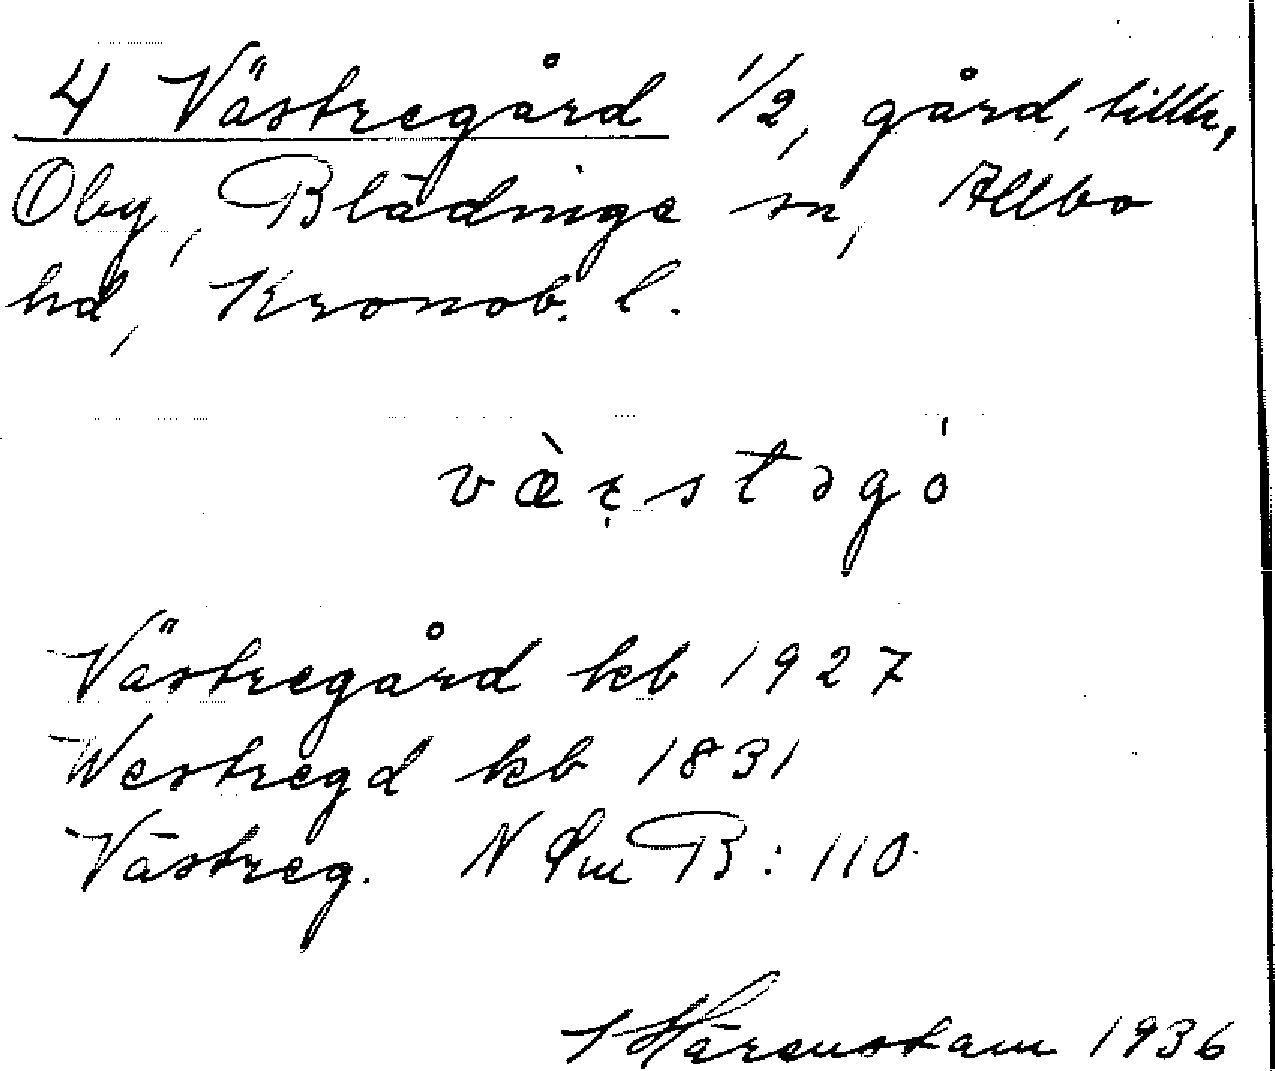 4 Västregård 1/2, gård, tillh,
Oby, Blädinge sn, Allbo
hd, Kronob. l.
væ̀ꞧstəgó
Västregård kb 1927
Westregd kb 1831
Västreg. N Sm B: 110
Härenstam 1936